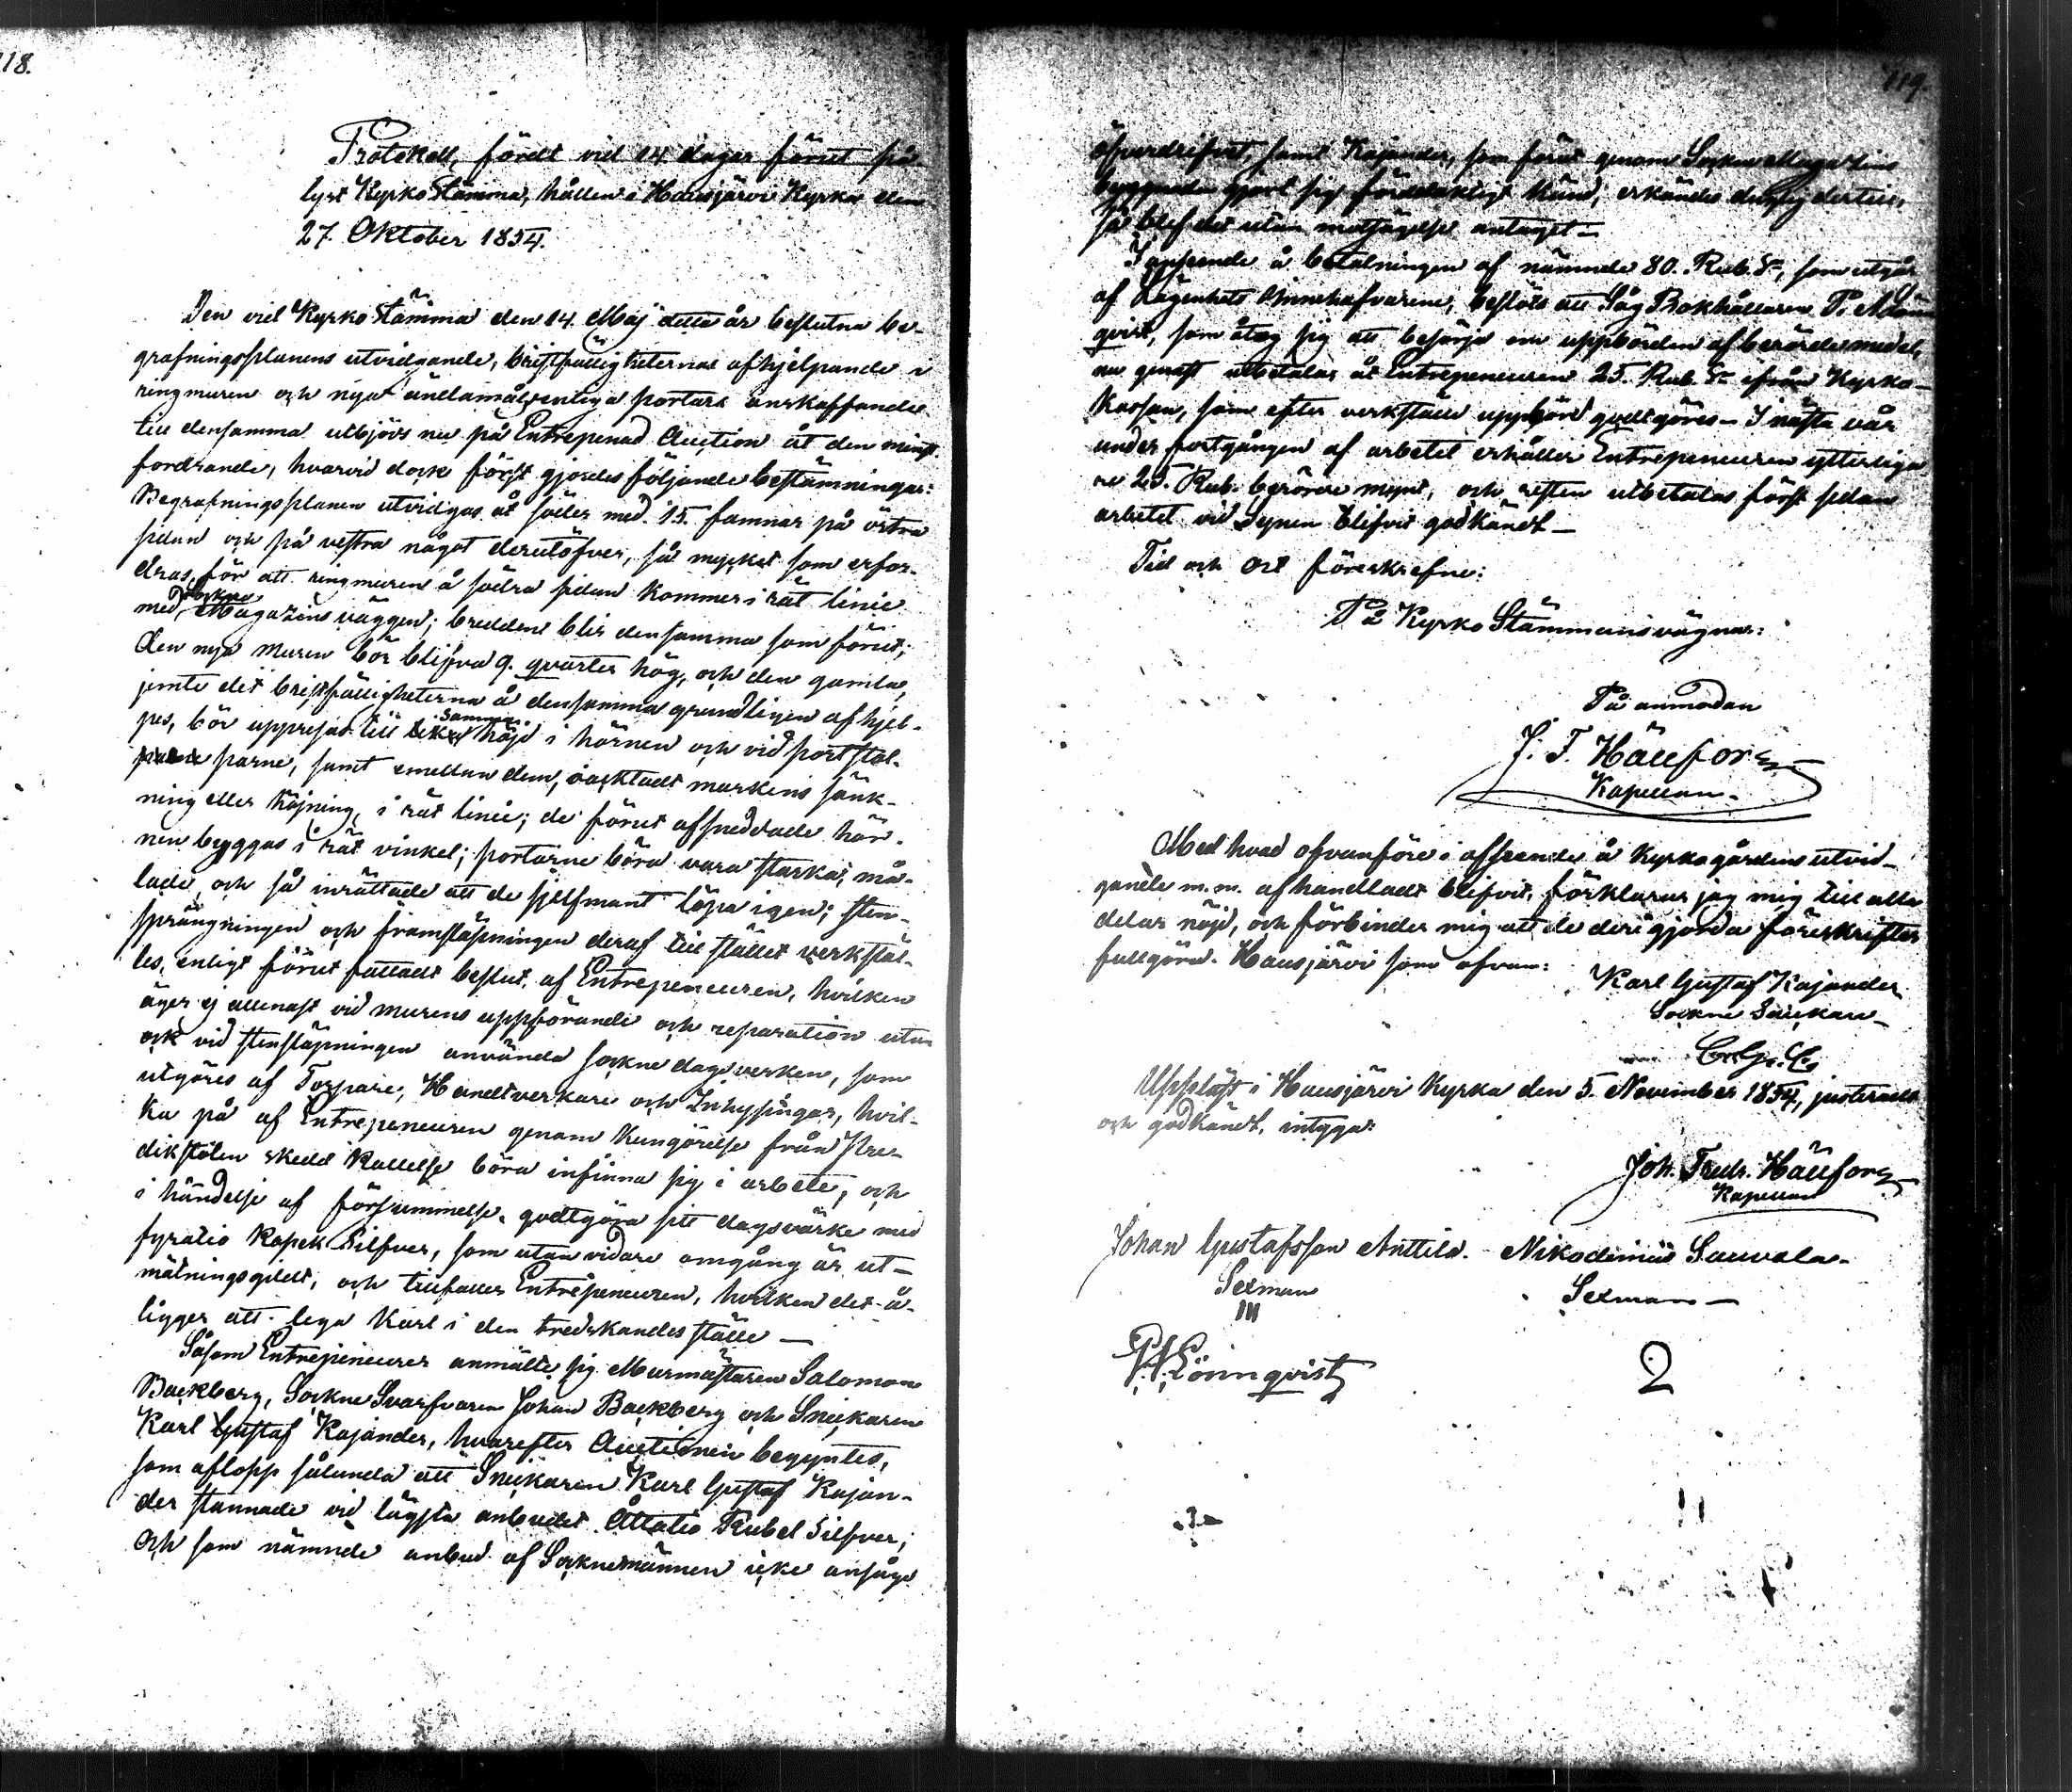 118.
Protokoll, fördt vid 14 dagar förut på-
lyst Kyrko Stämma, hållen i Hausjärvi Kyrka den
27. Oktober 1854.
Den vid Kyrko Stämma den 14. Maj detta år beslutna be-
grafningsplanens utvidgande, bristfälligheternas afhjelpande i
ringmuren och nya ändamålsenliga portars anskaffande
till densamma utbjöds nu på Entrepenad Auction åt den minst
fordrande, hvarvid dock först gjordes följande bestämningar:
Begrafningsplanen utvidgas åt söder med 15. famnar på östra
sidan och på vestra något derutöfver, så mycket som erfor-
dras, för att ringmuren å södra sidan kommer i rät linie
med Sockne Magazins väggen; bredden blir densamma som förut;
den nya muren bör blifva 9. qvarter hög, och den gamla,
jemte det bristfälligheterna å densamma grundligen afhjel-
pes, bör uppresas till lika samma höjd i hörnen och vid portstol-
parne, samt emellan dem, oacktadt markens sänk-
ning eller höjning, i rät linie; de förut afsneddade hör-
nen byggas i rät vinkel; portarne böra vara starka, må-
lade, och så inrättade att de sjelfmant löpa igen; sten-
sprängningen och framsläpningen deraf till stället verkstäl-
les, enligt förut fattadt beslut, af Entrepeneuren, hvilken
äger ej allenast vid murens uppförande och reparation utan
ock vid stensläpningen använda sockne dagsverken, som
utgöres af Torpare, Handtverkare och Inhysingar, hvil-
ka på af Entrepeneuren genom kungörelse från Pre-
dikstolen skedd kallelse böra infinna sig i arbete, och
i händelse af försummelse, godtgöra sitt dagsvärke med
fyratio Kopek Silfver, som utan vidare omgång är ut-
mätningsgildt, och tillfaller Entrepeneuren, hvilken det å-
ligger att lega Karl i den tredskandes ställe —
Såsom Entrepeneurer anmälte sig Murmästaren Salomon
Backberg, Sockne Svarfvaren Johan Backberg och Snickaren
Karl Gustaf Kajander, hvarefter Auctionen begyntes,
som aflopp sålunda att Snickaren Karl Gustaf Kajan-
der stannade vid lägsta anbudet Åttatio Rubel Silfver;
Och som nämnde anbud af Socknemännen icke ansågs
119.
öfverdrifvet, samt Kajander, som förut genom Socken Magazins
byggnaden gjort sig fördelaktigt känd, erkändes duglig dertill,
så blef det utan motsägelse antaget —
I anseende å betalningen af nämnde 80. Rub. S., som utgår
af Lägenhets Innehafvarene, beslöts att Såg Bokhållaren P.
qvist, som åtog sig att besörja om uppbörden af berörde medel,
nu genast utbetalar åt Entrepeneuren 25. Rub. S. ifrån Kyrko-
Kassan, som efter verkställd uppbörd godtgöres — I nästa vår
under fortgången af arbetet erhåller Entrepeneuren ytterliga-
re 25. Rub. berörde mynt, och resten utbetalas först sedan
arbetet vid Synen blifvit godkändt —
Tid och Ort föreskrefne:
På Kyrko Stämmans vägnar:
På anmodan
J. F. Hällfors
Kapellan.
Med hvad ofvanföre i afseende å Kyrkogårdens utvid-
gande m.m. afhandladt blifvit, förklarar jag mig till alla
delar nöjd, och förbinder mig att de deri gjorda föreskrifter
fullgöra. Hausjärvi som ofvan:
Karl Gustaf Kajander
Sockne Snickare
Uppläst i Hausjärvi Kyrka den 5. November 1854, justeradt
och godkändt, intyga:
Joh. Fredr. Hällfors
Kapellan
Johan Gustafsson Anttila. Nikodemus Sauvala.
Sexman Sexman —